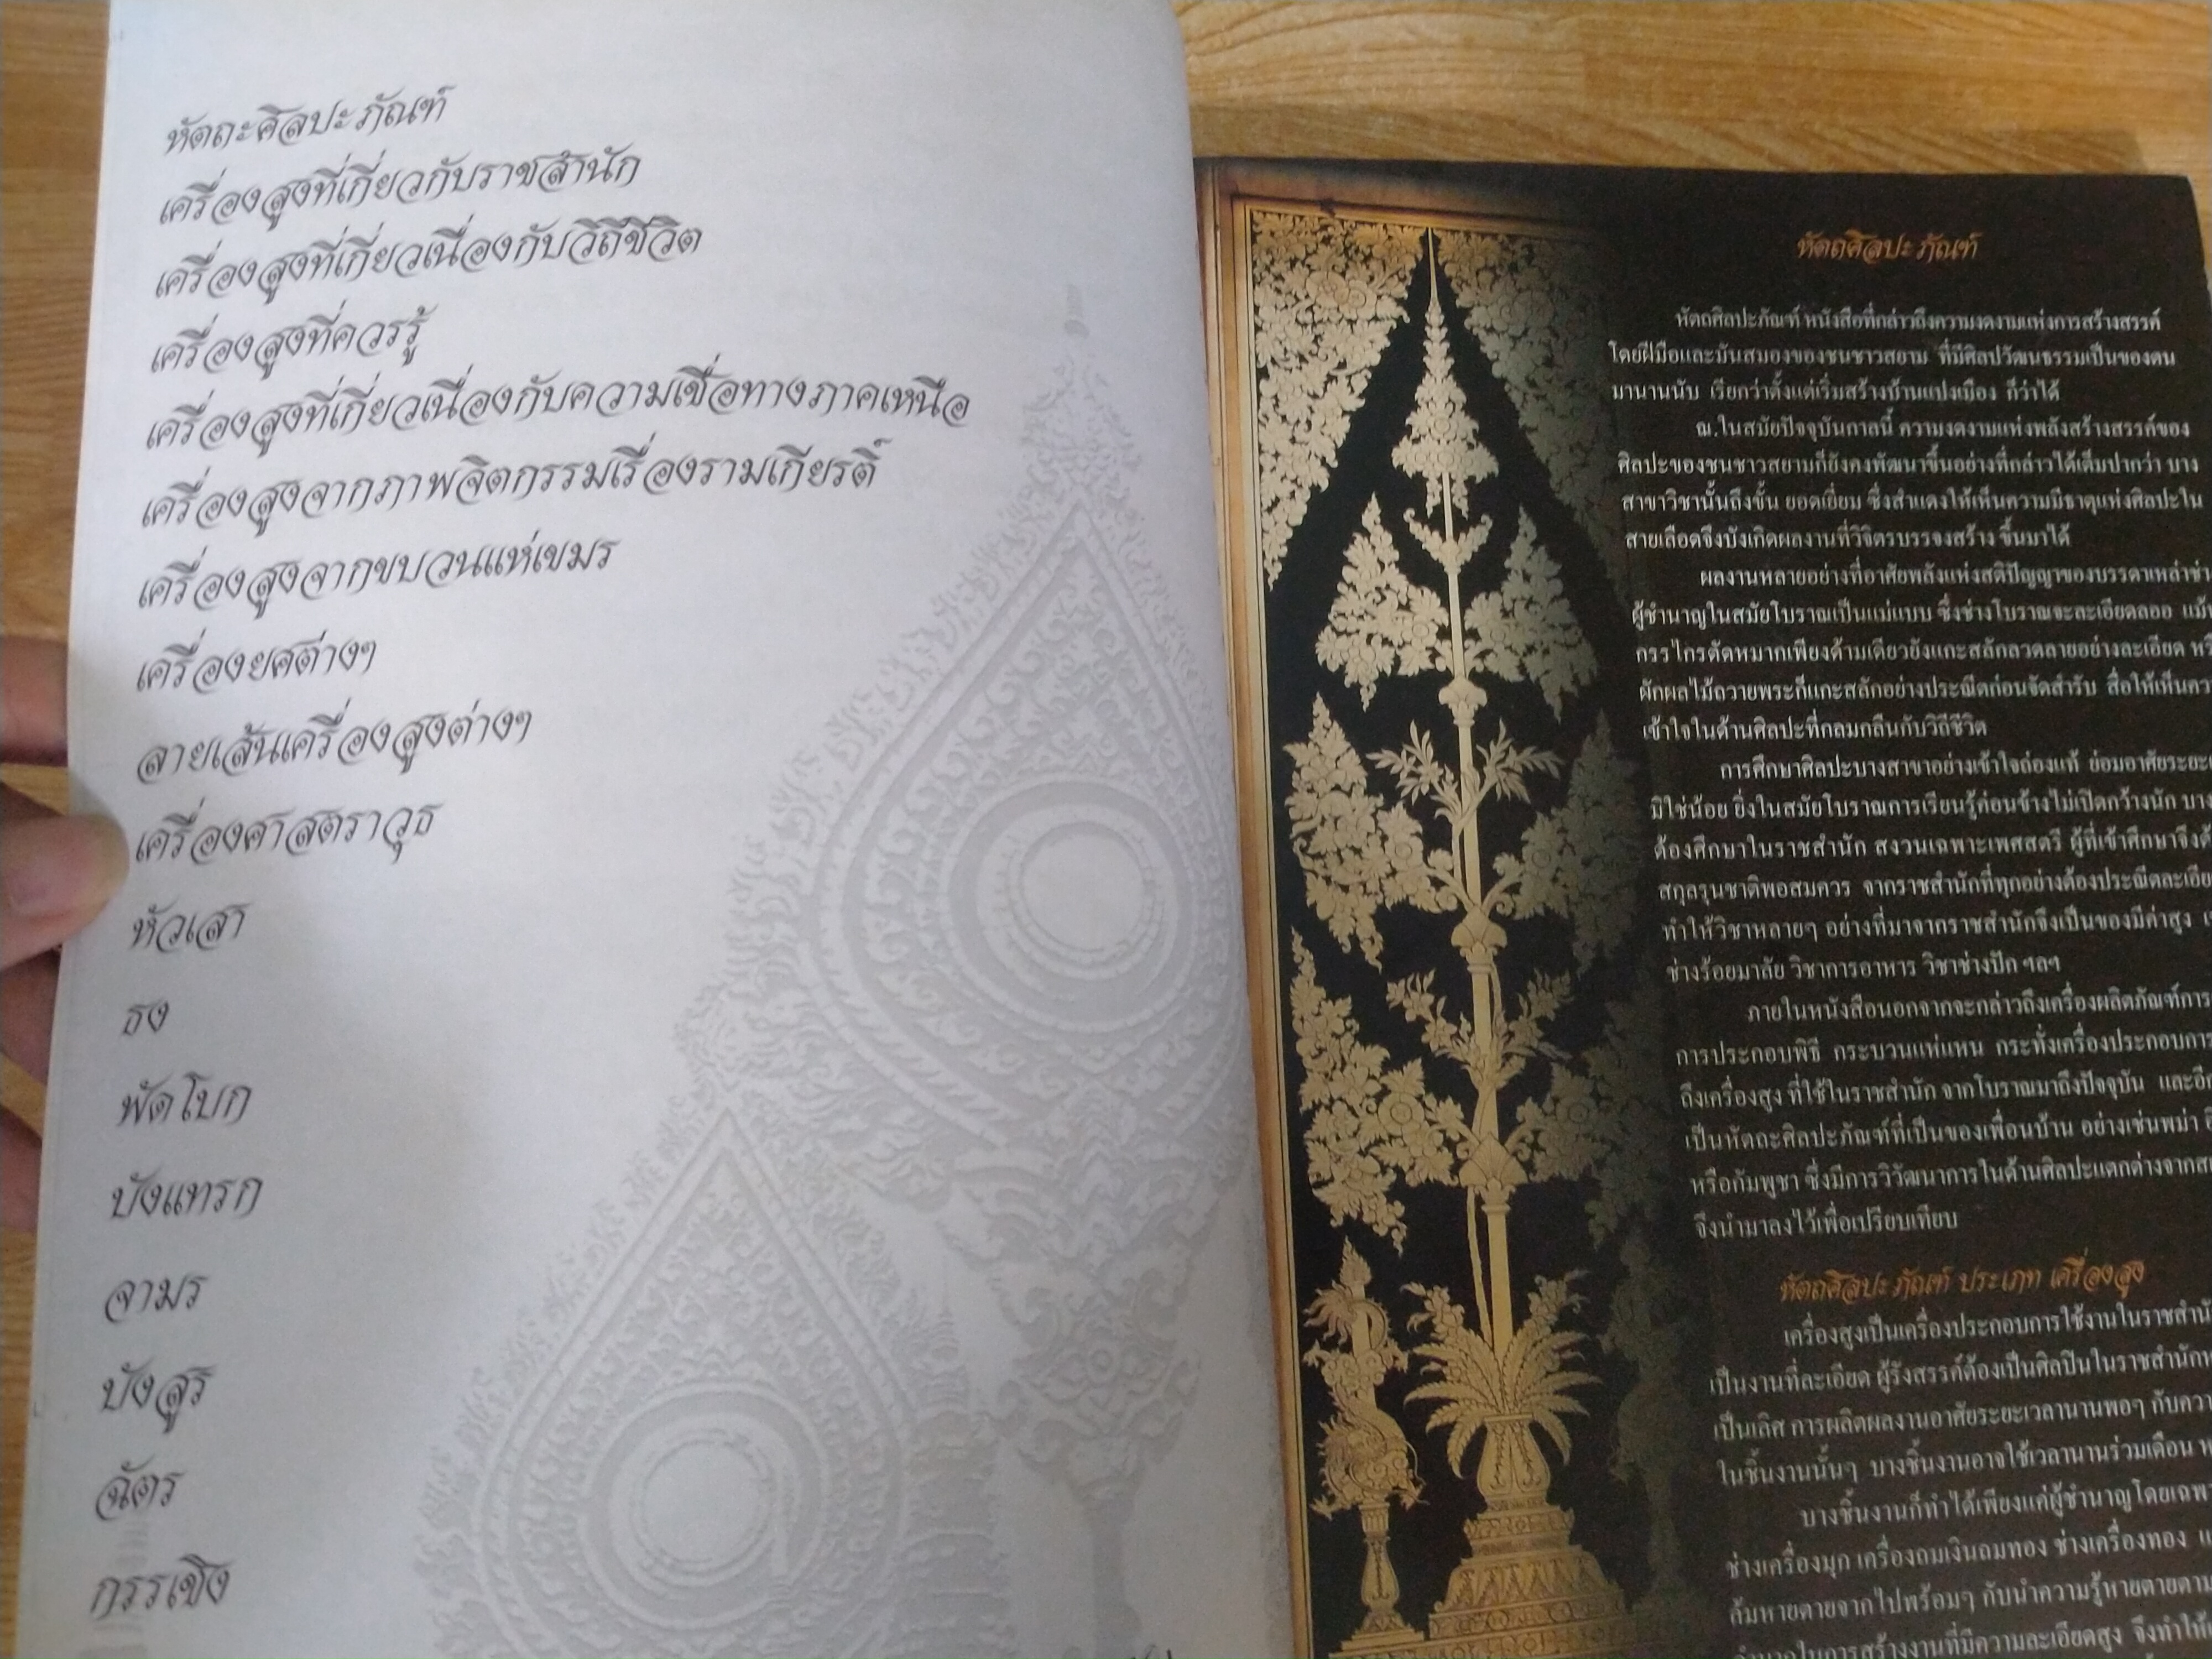 หัตถะศิลปะภัณฑ์
เครื่องสูงที่เกี่ยวกับราชสำนัก
เครื่องสูงที่เกี่ยวเนื่องกับวิถีชีวิต
เครื่องสูงที่ควรรู้
เครื่องสูงที่เกี่ยวเนื่องกับความเชื่อทางภาคเหนือ
เครื่องสูงจากภาพจิตกรรมเรื่องรามเกียรติ์
เครื่องสูงจากขบวนแห่เขมร
เครื่องยศต่างๆ
ลายเส้นเครื่องสูงต่างๆ
เครื่องศาสตราวุธ
หัวเสา
ธง
พัดโบก
บังแทรก
จามร
บังสูร
ฉัตร
กรรเชิง
หัตถศิลปะภัณฑ์
หัตถศิลปะภัณฑ์ หนังสือที่กล่าวถึงความงดงามแห่งการสร้างสรรค์
โดยฝีมือและมันสมองของชนชาวสยาม ที่มีศิลปวัฒนธรรมเป็นของตน
มานานนับ เรียกว่าตั้งแต่เริ่มสร้างบ้านแปงเมือง ก็ว่าได้
ณ.ในสมัยปัจจุบันกาลนี้ ความงดงามแห่งพลังสร้างสรรค์ของ
ศิลปะของชนชาวสยามก็ยังคงพัฒนาขึ้นอย่างที่กล่าวได้เต็มปากว่า บาง
สาขาวิชานั้นถึงขั้น ยอดเยี่ยม ซึ่งสำแดงให้เห็นความมีธาตุแห่งศิลปะใน
สายเลือดจึงบังเกิดผลงานที่วิจิตรบรรจงสร้าง ขึ้นมาได้
ผลงานหลายอย่างที่อาศัยพลังแห่งสติปัญญาของบรรดาเหล่าช่า
ผู้ชำนาญในสมัยโบราณเป็นแม่แบบ ซึ่งช่างโบราณจะละเอียดลออ แม้
กรรไกรตัดหมากเพียงด้ามเดียวยังแกะสลักลวดลายอย่างละเอียด หร
ผักผลไม้ถวายพระก็แกะสลักอย่างประณีตก่อนจัดสำรับ สื่อให้เห็นคว
เข้าใจในด้านศิลปะที่กลมกลืนกับวิถีชีวิต
การศึกษาศิลปะบางสาขาอย่างเข้าใจถ่องแท้ ย่อมอาศัยระยะเ
มิใช่น้อย ยิ่งในสมัยโบราณการเรียนรู้ค่อนข้างไม่เปิดกว้างนัก บา
ต้องศึกษาในราชสำนัก สงวนเฉพาะเพศสตรี ผู้ที่เข้าศึกษาจึงต้
สกุลรุนชาติพอสมควร จากราชสำนักที่ทุกอย่างต้องประณีตละเอีย
ทำให้วิชาหลายๆ อย่างที่มาจากราชสำนักจึงเป็นของมีค่าสูง
ช่างร้อยมาลัย วิชาการอาหาร วิชาช่างปัก ฯลฯ
ภายในหนังสือนอกจากจะกล่าวถึงเครื่องผลิตภัณฑ์การ
การประกอบพิธี กระบวนแห่แหน กระทั่งเครื่องประกอบการ
ถึงเครื่องสูง ที่ใช้ในราชสำนัก จากโบราณมาถึงปัจจุบัน และอี
เป็นหัตถะศิลปะภัณฑ์ที่เป็นของเพื่อนบ้าน อย่างเช่นพม่า
หรือกัมพูชา ซึ่งมีการวิวัฒนาการในด้านศิลปะแตกต่างจากส
จึงนำมาลงไว้เพื่อเปรียบเทียบ
หัตถศิลปะภัณฑ์ ประเภท เครื่องสูง
เครื่องสูงเป็นเครื่องประกอบการใช้งานในราชสำนั
เป็นงานที่ละเอียด ผู้รังสรรค์ต้องเป็นศิลปินในราชสำนัก
เป็นเลิศ การผลิตผลงานอาศัยระยะเวลานานพอๆ กับคว
ในชิ้นงานนั้นๆ บางชิ้นงานอาจใช้เวลานานร่วมเดือน
บางชิ้นงานก็ทำได้เพียงแค่ผู้ชำนาญโดยเฉพ
ช่างเครื่องมุก เครื่องถมเงินถมทอง ช่างเครื่องทอง
ล้มหายตายจากไปพร้อมๆ กับนำความรู้หายตายตาม
ในการสร้างงานที่มีความละเอียดสูง จึงทำให้